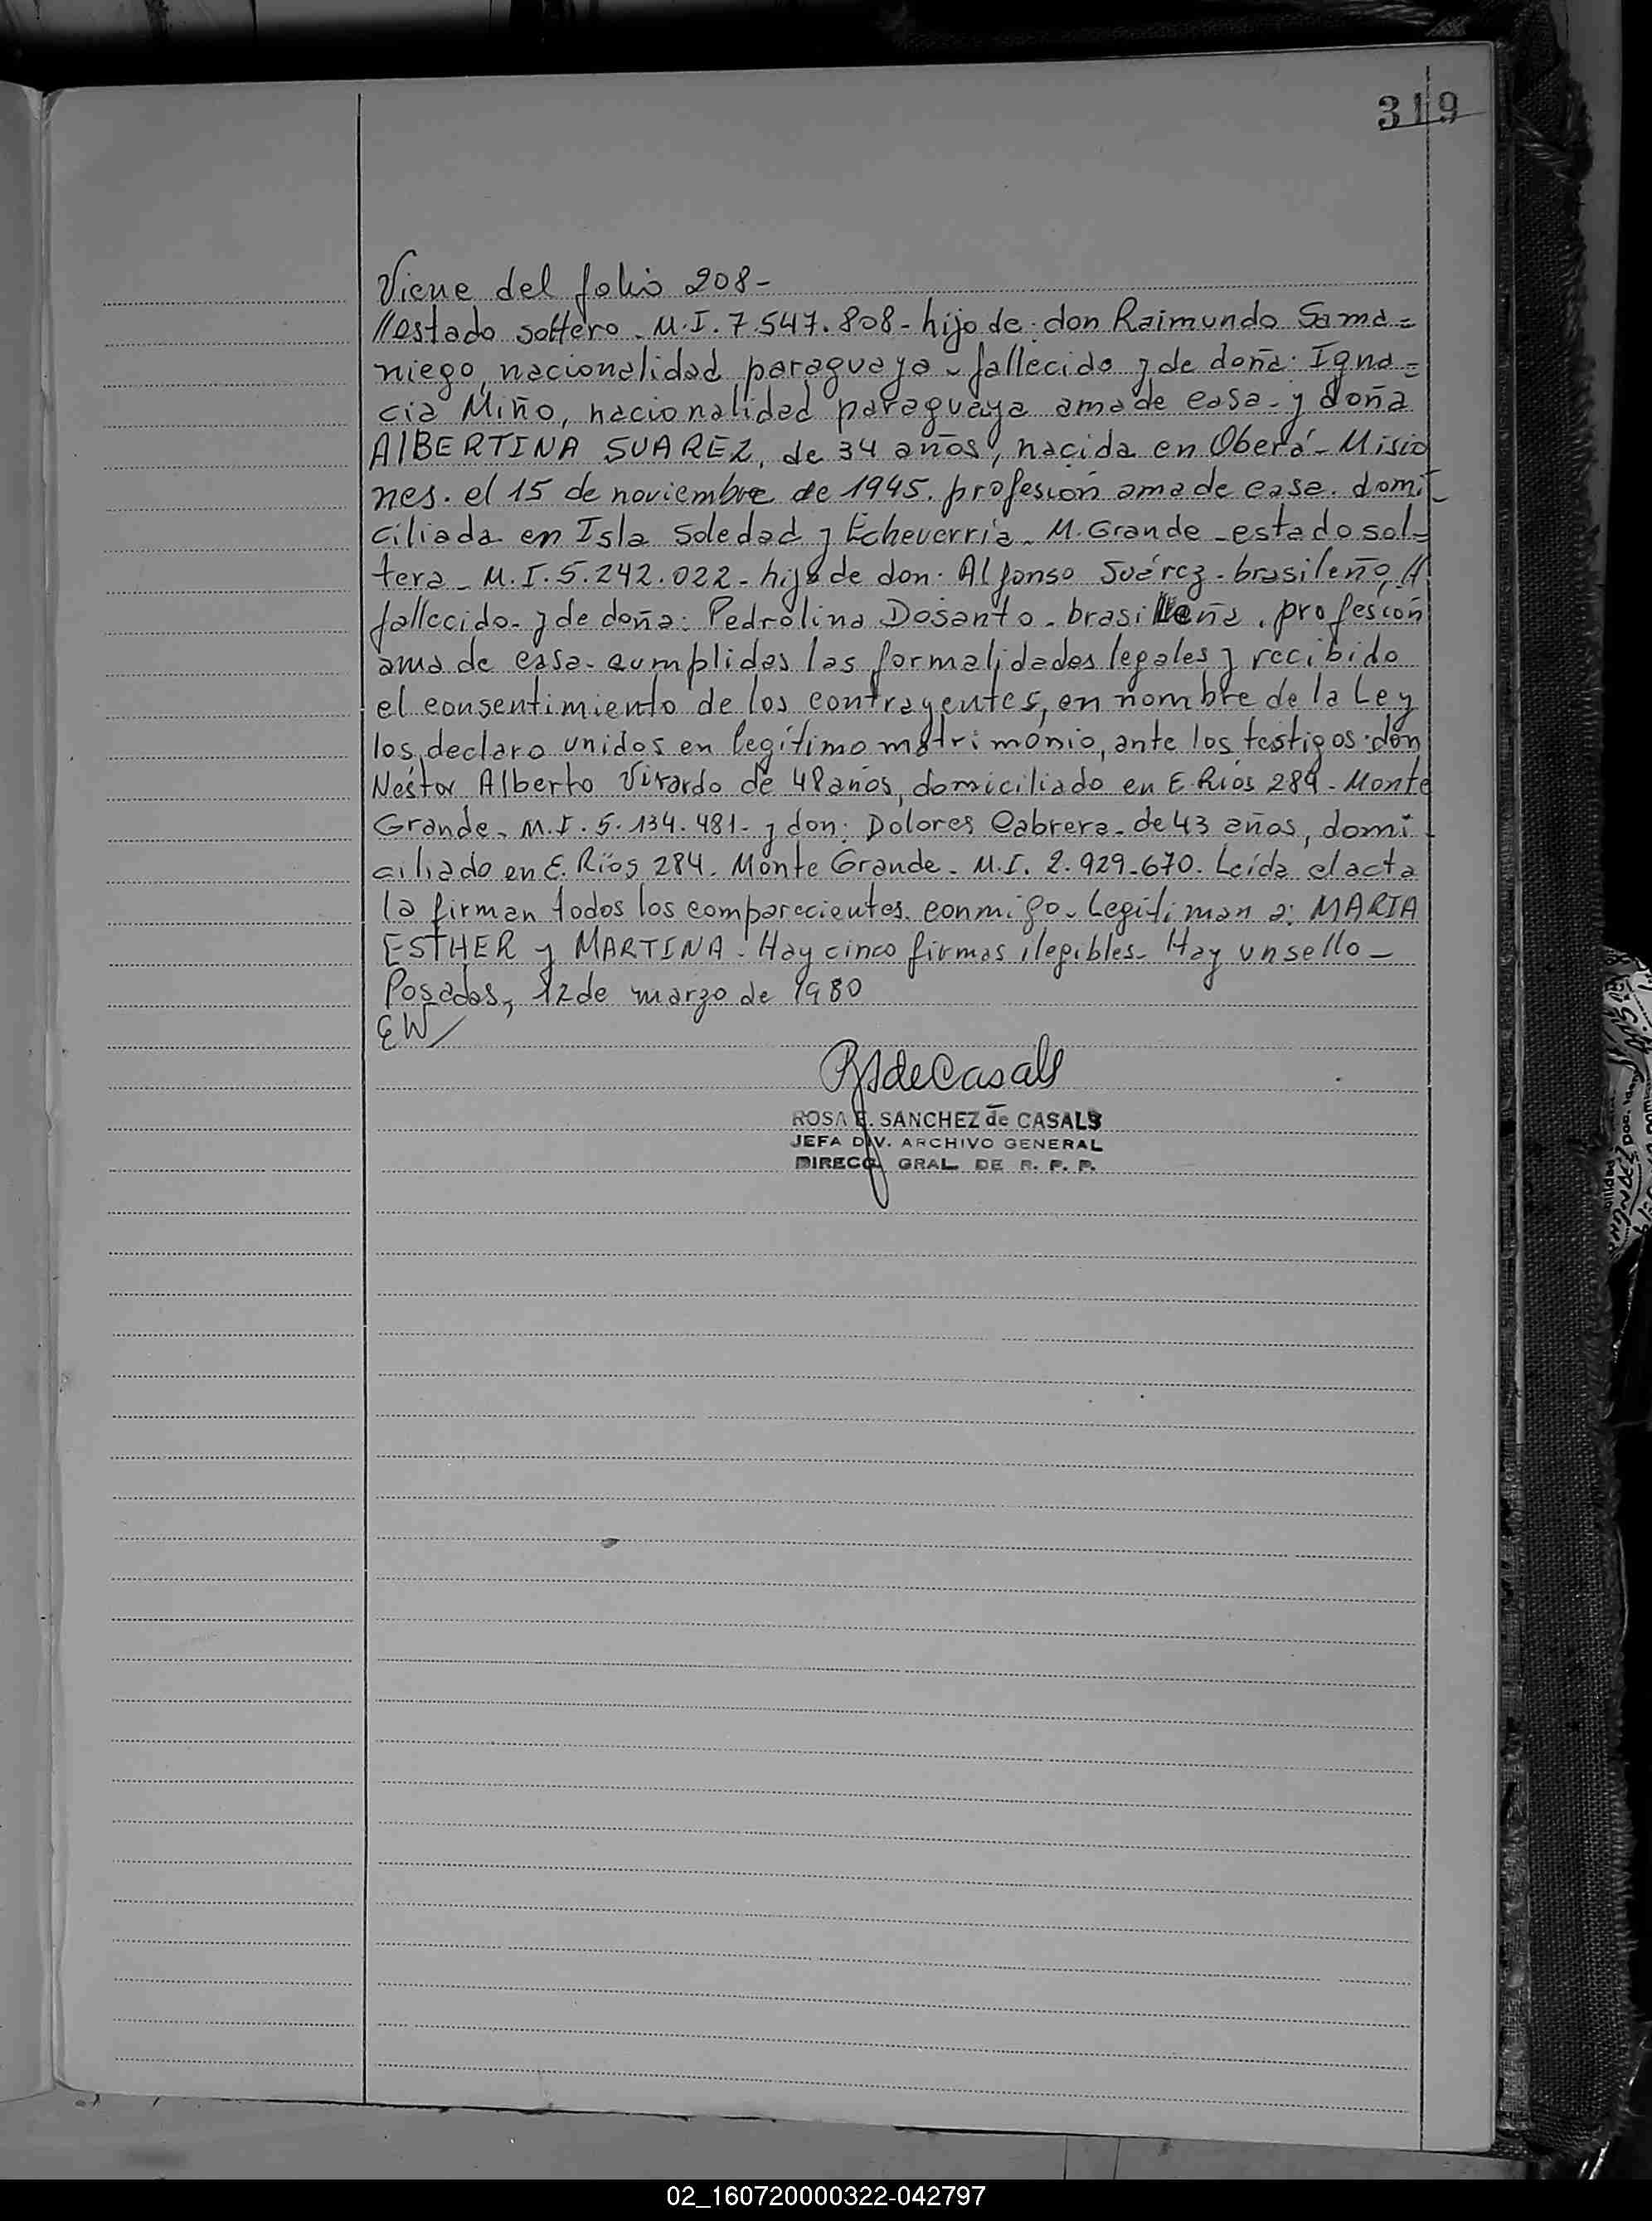 319
Viene del folio 208-
//estado soltero. M.I. 7.547.808- hijo de: don Raimundo Sama=
niego, nacionalidad paraguaya - fallecido y de doña: Igna=
cia Miño, nacionalidad paraguaya ama de casa- y doña
AlBERTINA SUAREZ, de 34 años, nacida en Oberá- Misio
nes. el 15 de noviembre de 1945. profesión ama de casa. domi-
ciliada en Isla Soledad y Echeverría. M. Grande - estado sol-
tera - M.I. 5.242.022 - hija de don: Alfonso Suárez - brasileño, //
fallecido- y de doña: Pedrolina Dosanto - brasileña. profesión
ama de casa- cumplidas las formalidades legales y recibido
el consentimiento de los contrayentes, en nombre de la Ley
los declaro unidos en legítimo matrimonio, ante los testigos: don
Néstor Alberto de 48 años, domiciliado en E. Ríos 284 - Monte
Grande - M.I. 5.134.481- y don: Dolores Cabrera- de 43 años, domi-
ciliado en E. Ríos 284. Monte Grande - M.I. 2.929.670. Leída el acta
la firman todos los comparecientes. conmigo. Legitiman a: MARIA
ESTHER y MARTINA - Hay cinco firmas ilegibles- Hay un sello -
Posadas, 12 de marzo de 1980
EW
RSdeCasals
ROSA E. SANCHEZ de CASALS
JEFA DIV. ARCHIVO GENERAL
DIRECC. GRAL. DE R. P. P.
02_160720000322-042797